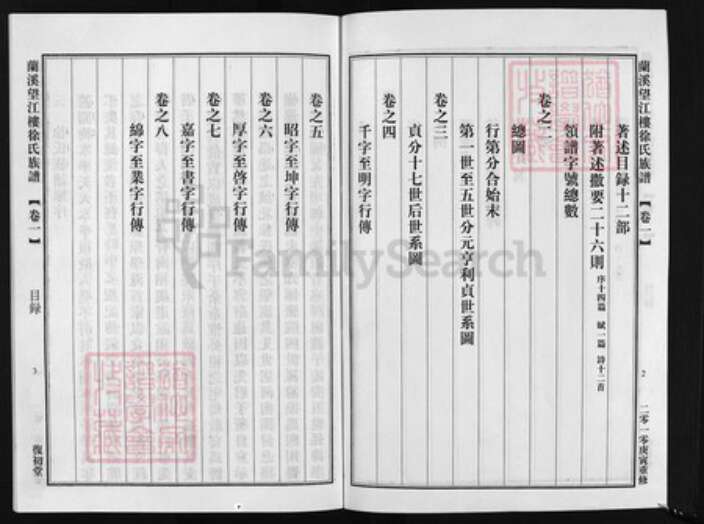 蘭溪望江樓徐氏族譜【卷一】
2
二零一零庚寅重修
著述目録十二部
附著述撤要二十六則 序十四篇 賦一篇 詩十二首
領譜字號總數
卷之二
總圖
行第分合始末
第一世至五世分元亨利貞世系圖
卷之三
貞分十七世后世系圖
卷之四
千字至明字行傳
卷之五
昭字至坤字行傳
卷之六
厚字至啓字行傳
卷之七
嘉字至書字行傳
卷之八
綿字至業字行傳
蘭溪望江樓徐氏族譜【卷一】
目録
3
復初堂
FamilySearch